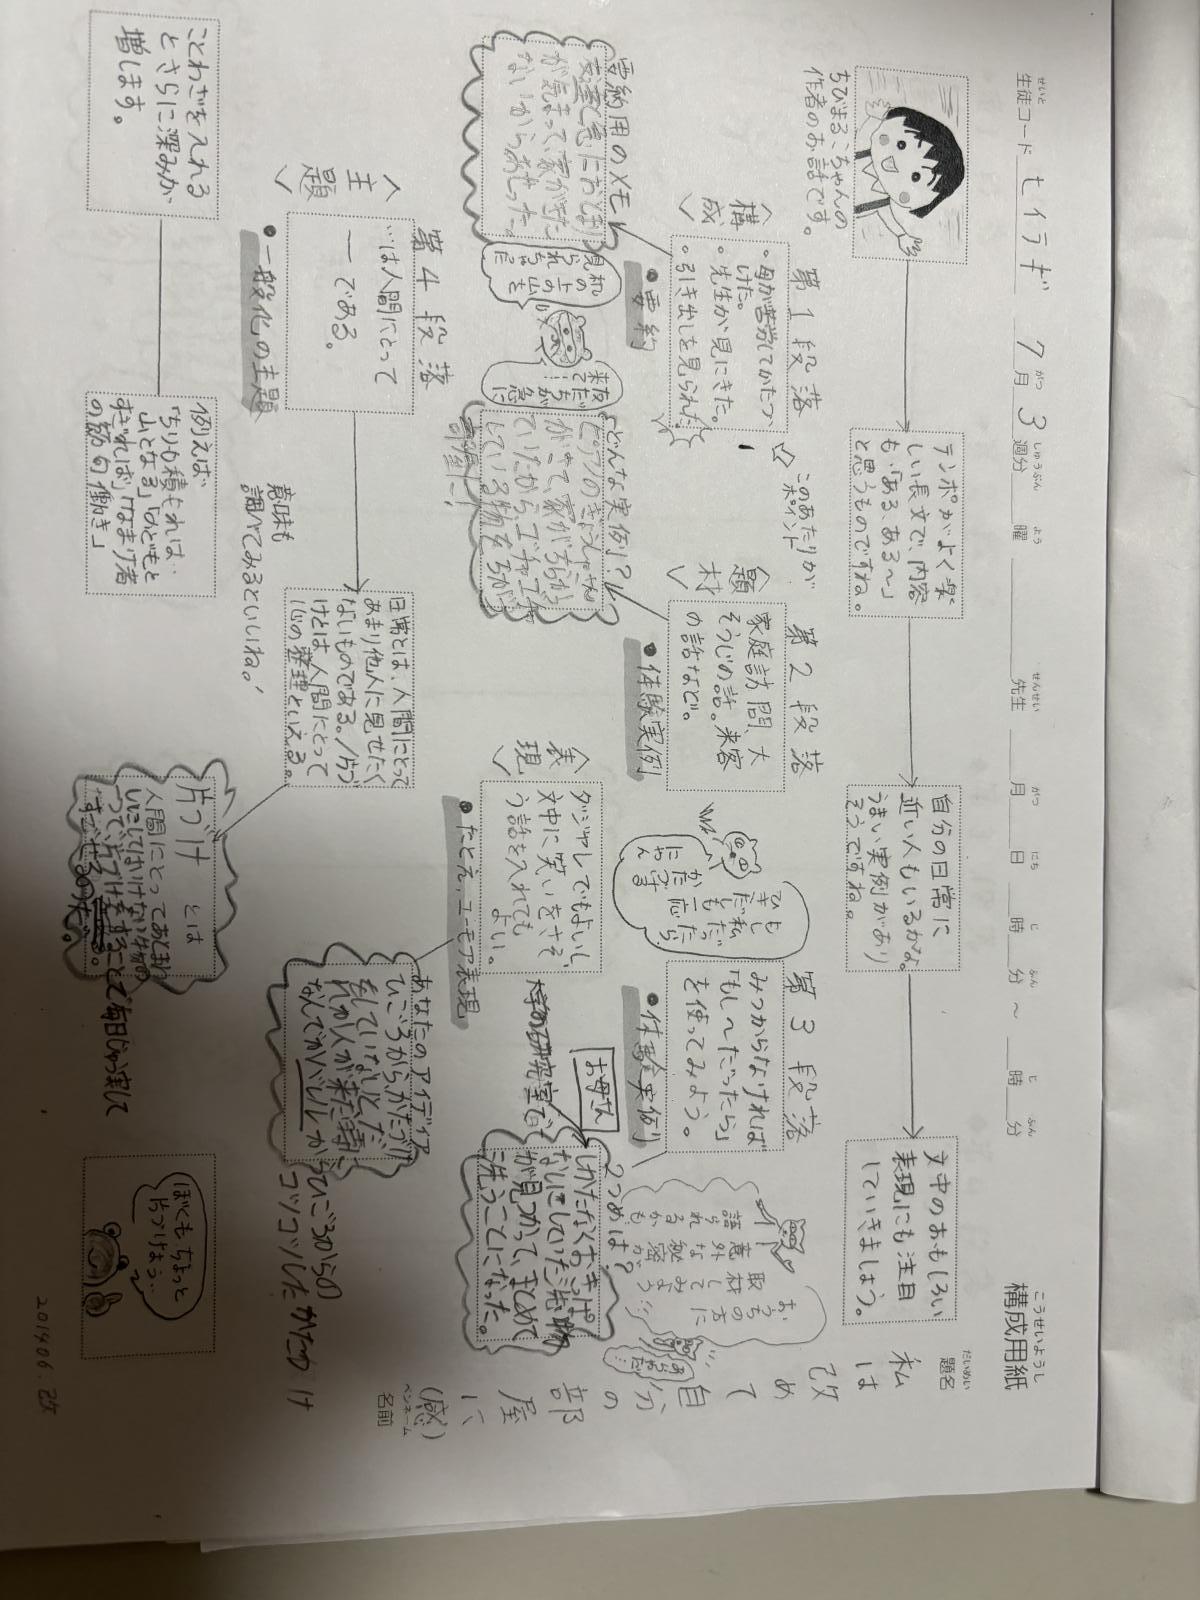 構成用紙
生徒コード セイラギ 7月3週分 曜 先生 月 日 時 分 ～ 時 分
題名
私は
改めて
自分の
部屋に、
(感)
ペンネーム
名前
ちびまるこちゃんの
作者のお話です。
テンポがよく楽
しい長文で、内容
も、「あるある～」
と思うものですね。
自分の日常に
近い人もいるかな。
うまい実例があり
そうですね。
文中のおもしろい
表現にも注目
していきましょう。
〈構成〉
第1段落
・母が苦労してかたづ
けた。
・先生が見にきた。
・引き出しを見られた。
●要約
このあたりが
ポイント
〈題材〉
第2段落
家庭訪問、大
そうじの話。来客
の話など。
●体験実例
ひきだしも
私だったら
一応
かたづける
にゃん
第3段落
みつからなければ
「もし～だったら」
を使ってみよう。
●体験実例
おうちの方に
取材してみよう
意外な秘密が
語られるかも
要約用のメモ
友達が急におとまり
が気まって、家がきた
ないからあせった。
机の上の山を
見られちゃった
友だちが急に
来て…
どんな実例?
ピアノの
部屋に!
〈表現〉
ダジャレでもよいし、
文中に笑いをさそ
う話を入れても
よい。
●たとえ、ユーモア表現
お母さん
2つめは?
しかたなくおきっぱ
なしにしていた洗物
が見つかって、まとめて
洗うことになった。
〈主題〉
第4段落
…は人間にとって
ーである。
●一般化の主題
日常とは、人間にとって
あまり他人に見せたく
ないものである。/片づ
けとは人間にとって
心の整理といえる。
あなたのアイディア
ひごろからかたづけ
をしていないと、だ
れか人が来た時に
なんでかバレしか
らひごろからの
コツコツしたかたづけ
ことわざを入れる
とさらに深みが
増します。
例えば
「ちりも積もれば…
山となる」「のどもと
すぎれば」「なまけ者
の節句働き」
意味も
調べてみるといいね。!
片づけ とは
人間にとってあとまわ
しにしてはいけない
ぼくもちょっと
片づけよう…
201406.改